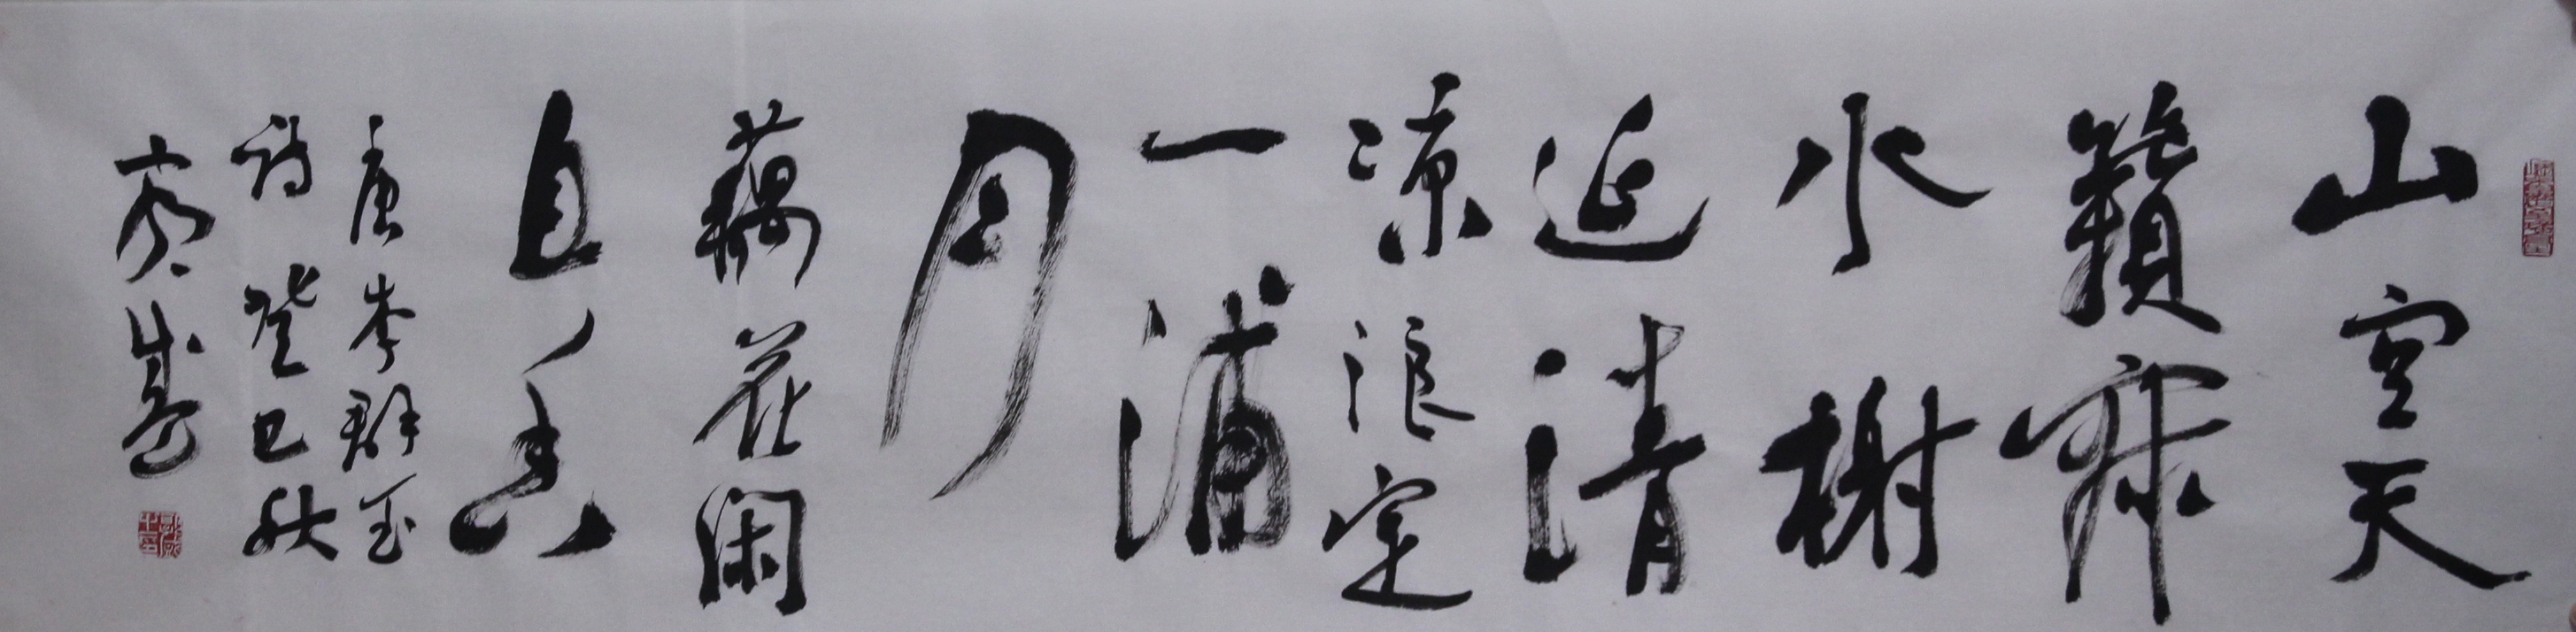 山空天
籁寂
水榭
延清
凉浪定
一浦
月
藕花闲
自香
唐李群玉
诗癸巳秋